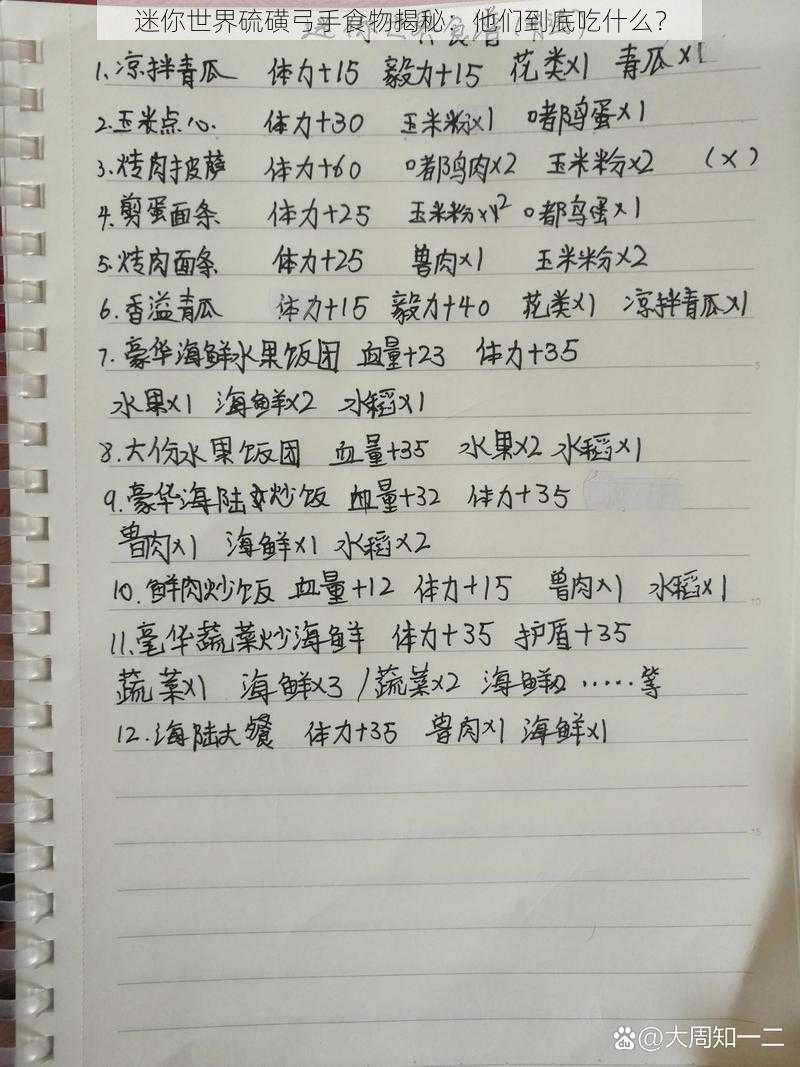 迷你世界硫磺弓手食物揭秘：他们到底吃什么？
1.凉拌青瓜 体力+15 毅力+15 花类×1 青瓜×1
2.玉米点心. 体力+30 玉米粉×1 嘟鸟蛋×1
3.烤肉披萨 体力+60 嘟鸟肉×2 玉米粉×2 (×)
4.剪蛋面条 体力+25 玉米粉×2 嘟鸟蛋×1
5.烤肉面条 体力+25 兽肉×1 玉米粉×2
6.香溢青瓜 体力+15 毅力+40 花类×1 凉拌青瓜×1
7.豪华海鲜水果饭团 血量+23 体力+35
水果×1 海鲜×2 水稻×1
8.大份水果饭团 血量+35 水果×2 水稻×1
9.豪华海陆炒饭 血量+32 体力+35
兽肉×1 海鲜×1 水稻×2
10.鲜肉炒饭 血量+12 体力+15 兽肉×1 水稻×1
11.毫华蔬菜炒海鲜 体力+35 护盾+35
蔬菜×1 海鲜×3 /蔬菜×2 海鲜 ……等
12.海陆大餐 体力+35 兽肉×1 海鲜×1
5
10
15
Bai du @大周知一二